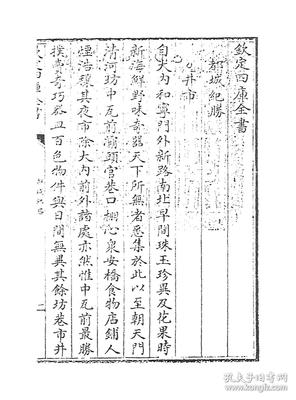 欽定四庫全書
都城紀勝
井市
自大內和寧門外新路南北早間珠玉珍異及花果時
新海鮮野味奇器天下所無者悉集於此以至朝天門
清河坊中瓦前灞頭官巷口棚心衆安橋食物店鋪人
煙浩穰其夜市除大內前外諸處亦然惟中瓦前最勝
撲賣奇巧器皿百色物件與日間無異其餘坊巷市井